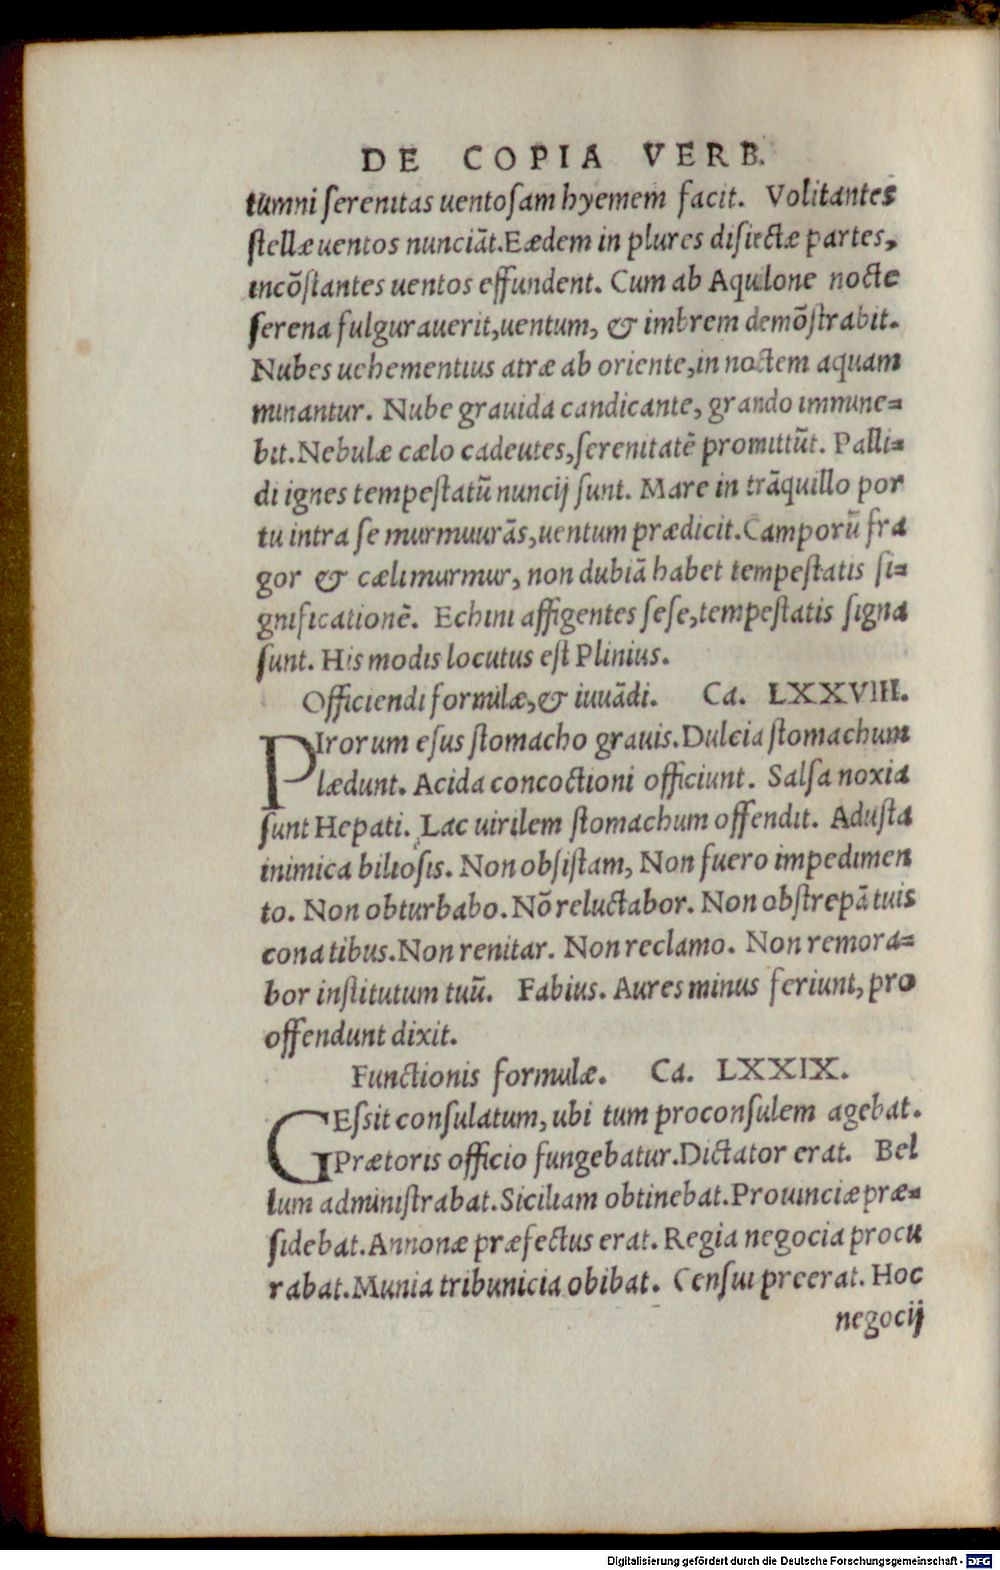 DE COPIA VERB.
tumni ſerenitas uentoſam hyemem facit. Volitantes
ſtellæ uentos nunciãt. Eædem in plures diſiectæ partes,
incõſtantes uentos effundent. Cum ab Aquilone nocte
ſerena fulgurauerit, uentum, & imbrem demõſtrabit.
Nubes uehementius atræ ab oriente, in noctem aquam
minantur. Nube grauida candicante, grando immine=
bit. Nebulæ cælo cadeutes, ſerenitatẽ promittũt. Palli=
di ignes tempeſtatũ nuncij ſunt. Mare in trãquillo por
tu intra ſe murmuurãs, uentum prædicit. Camporũ fra
gor & cæli murmur, non dubiã habet tempeſtatis ſi=
gnificationẽ. Echini affigentes ſeſe, tempeſtatis ſigna
ſunt. His modis locutus eſt Plinius.
Officiendi formulæ, & iuuãdi. Ca. LXXVIII.
PIrorum eſus ſtomacho grauis. Dulcia ſtomachum
lædunt. Acida concoctioni officiunt. Salſa noxia
ſunt Hepati. Lac uirilem ſtomachum offendit. Aduſta
inimica bilioſis. Non obſiſtam, Non fuero impedimen
to. Non obturbabo. Nõ reluctabor. Non obſtrepã tuis
conatibus. Non renitar. Non reclamo. Non remora=
bor inſtitutum tuũ. Fabius. Aures minus feriunt, pro
offendunt dixit.
Functionis formulæ. Ca. LXXIX.
GEſsit conſulatum, ubi tum proconſulem agebat.
Prætoris officio fungebatur. Dictator erat. Bel
lum adminiſtrabat. Siciliam obtinebat. Prouinciæ præ=
ſidebat. Annonæ præfectus erat. Regia negocia procu
rabat. Munia tribunicia obibat. Cenſui preerat. Hoc
negocij
Digitalisierung gefördert durch die Deutsche Forschungsgemeinschaft - DFG